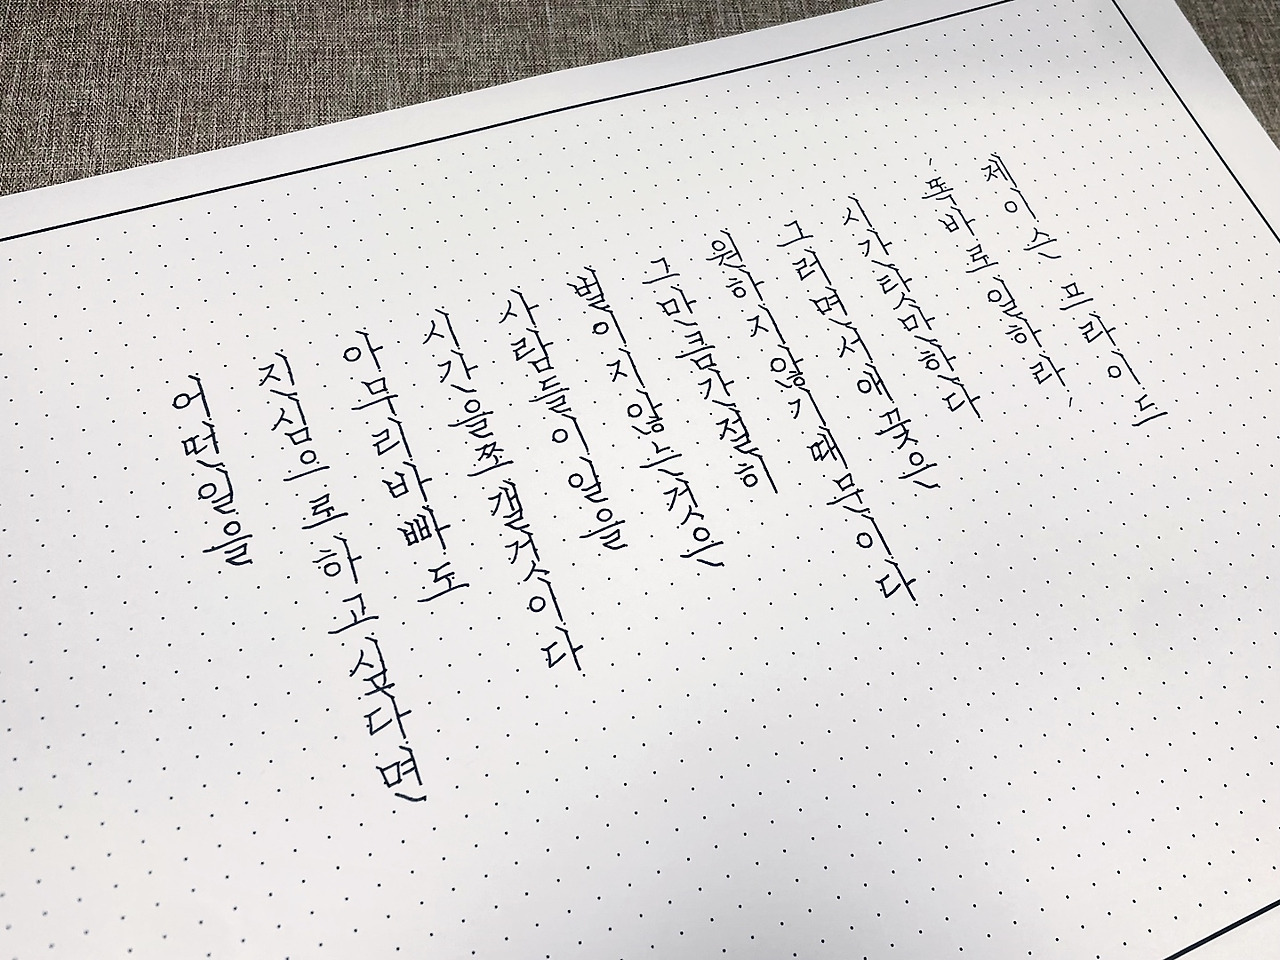 어떤일을
진심으로하고싶다면
아무리바빠도
시간을쪼갤것이다
사람들이일을
벌이지않는것은
그만큼간절히
원하지않기때문이다
그러면서애꿎은
시간탓만한다
'똑바로일하라'
제이슨 프라이드